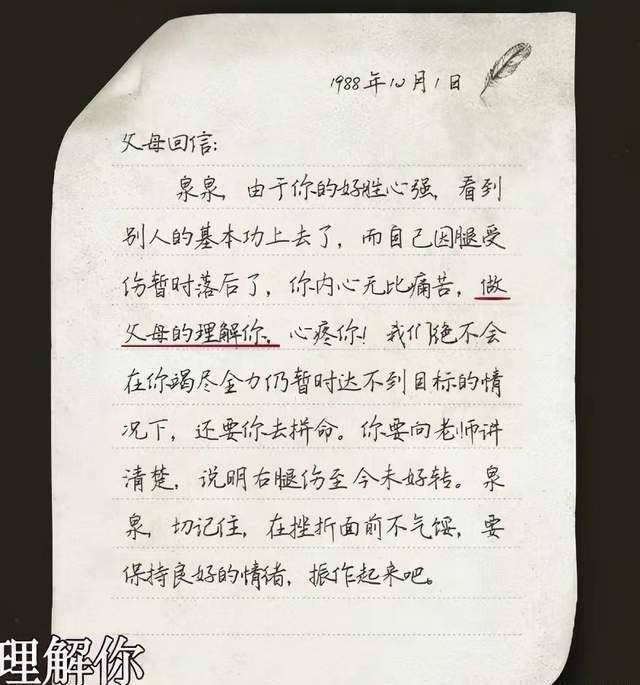 1988年12月1日
父母回信:
泉泉，由于你的好胜心强，看到
别人的基本功上去了，而自己因腿受
伤暂时落后了，你内心无比痛苦，做
父母的理解你，心疼你！我们绝不会
在你竭尽全力仍暂时达不到目标的情
况下，还要你去拼命。你要向老师讲
清楚，说明右腿伤至今未好转。泉
泉，切记住，在挫折面前不气馁，要
保持良好的情绪，振作起来吧。
理解你